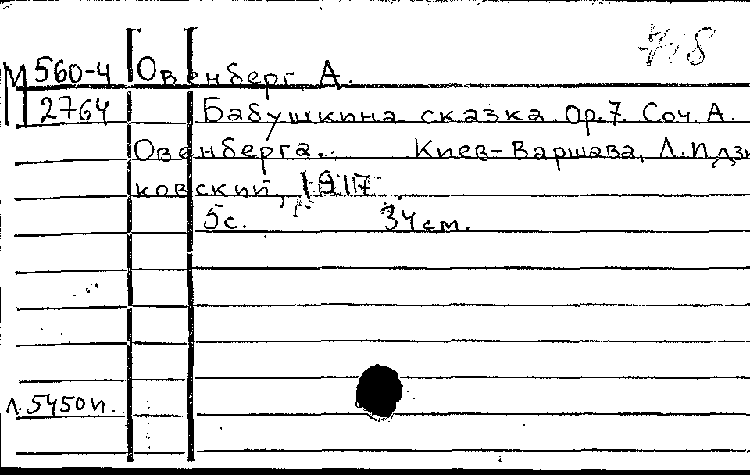 М 560-4 Овенберг А.
2764 Бабушкина сказка Op.7. Соч. А.
Овенберга. Киев-Варшава, Л.Идзи
ковский, 1917.
5с. 34 см.
Л.5450п.